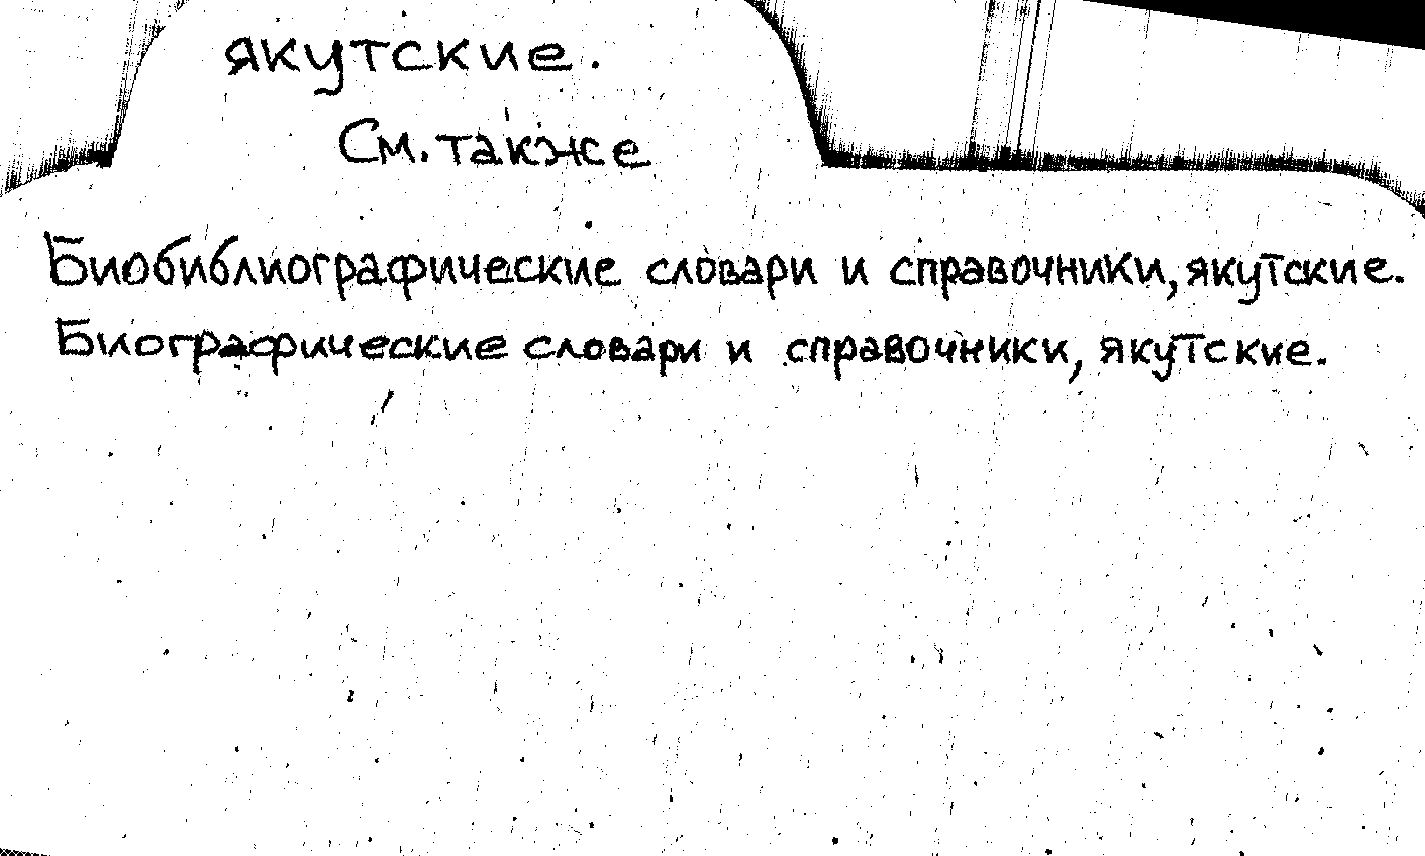 якутские.
См. также
Биобиблиографические словари и справочники, якутские.
Биографические словари и справочники, якутские.